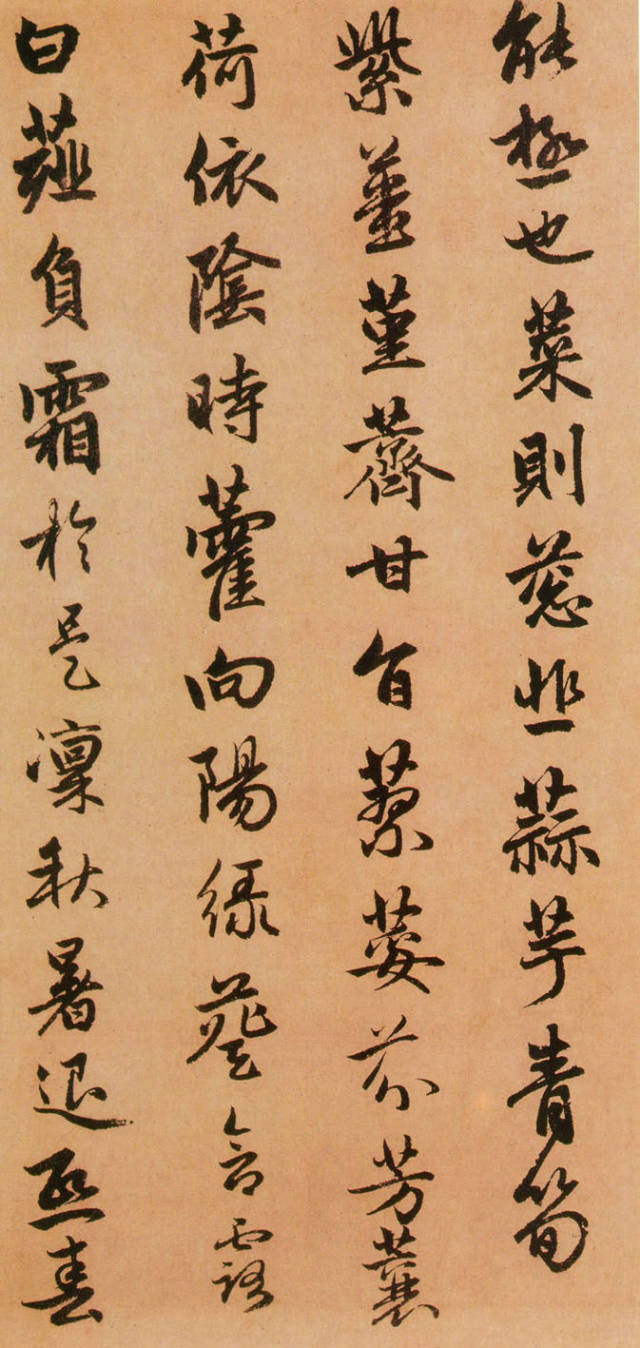 能極也菜則葱韭蒜芋青筍
紫薑堇薺甘旨蓼荾芬芳蘘
荷依陰時藿向陽緑葵含露
白薤負霜於是凜秋暑退熙春